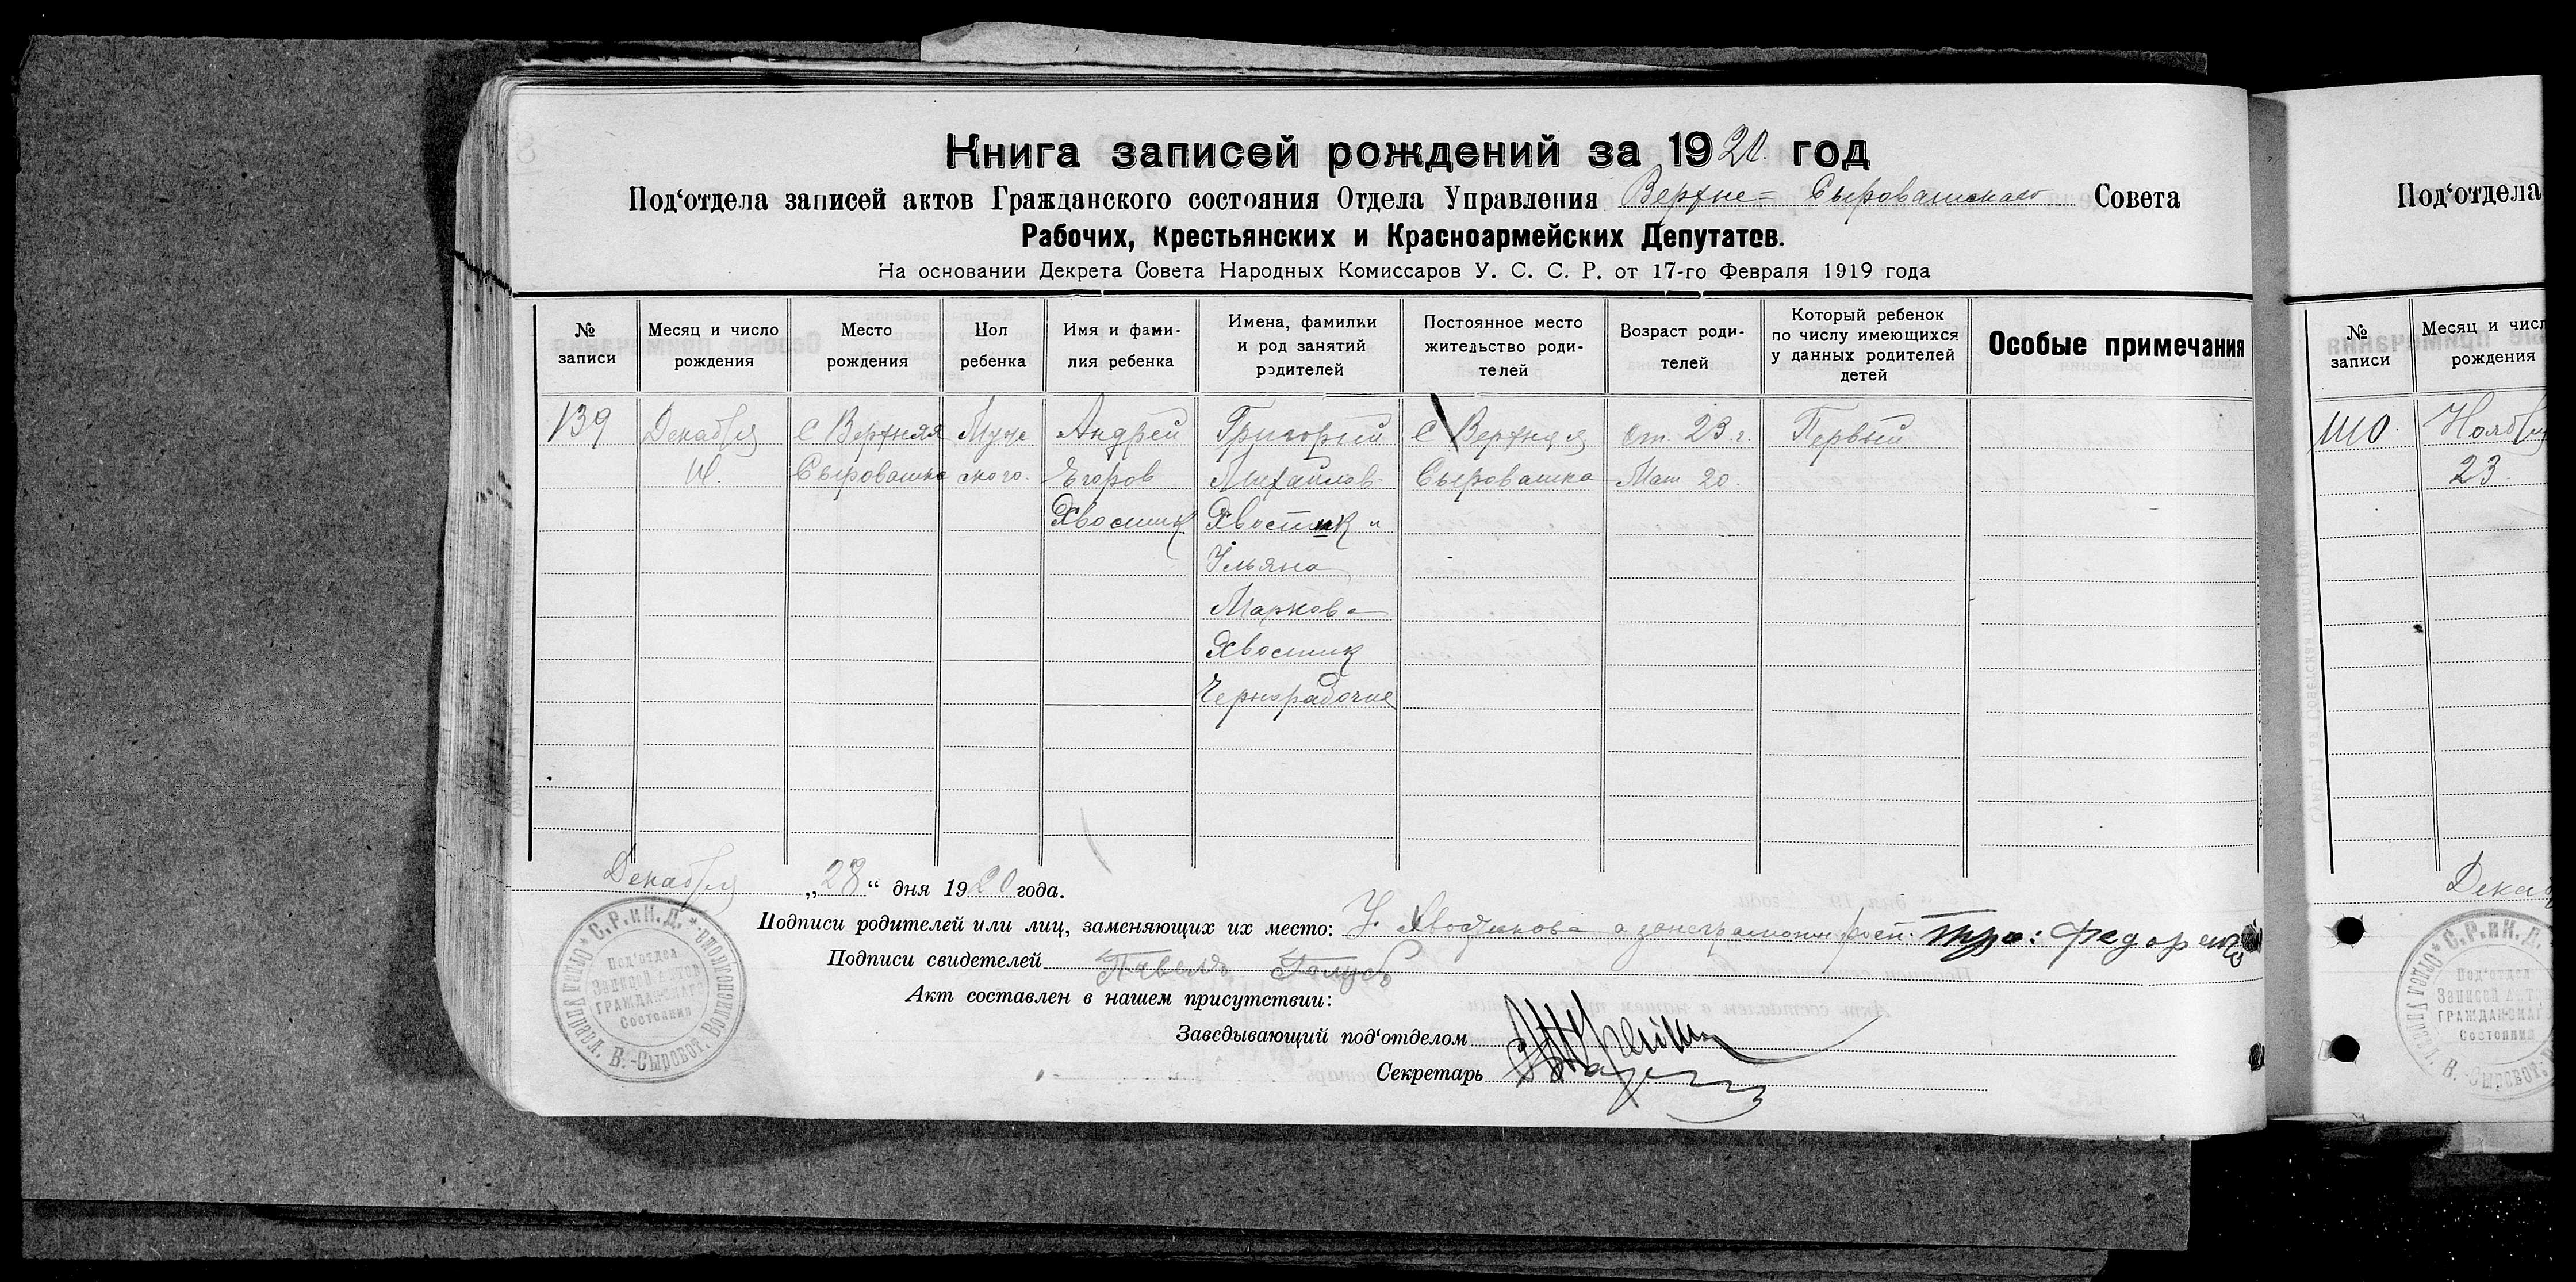 Книга записей рождений за 1920 год
Под‘отдела записей актов Гражданского состояния Отдела Управления Верхне-Сыроватского Совета
Рабочих, Крестьянских и Красноармейских Депутатов.
На основании Декрета Совета Народных Комиссаров У. С. С. Р. от 17-го Февраля 1919 года
№ записи
Месяц и число рождения
Место рождения
Пол ребенка
Имя и фамилия ребенка
Имена, фамилии и род занятий родителей
Постоянное место жительство родителей
Возраст родителей
Который ребенок по числу имеющихся у данных родителей детей
Особые примечания
139 Декабря С Верхняя Муже Андрей Григорий С Верхняя От. 23 г. Первый
Сыроватка ского. Егоров Михайлов Сыроватка Мат 20.
Хвостик Хвостик и
Ульяна
Маркова
Хвостик
Чернорабочие
Декабря „28“ дня 1920 года.
Подписи родителей или лиц, заменяющих их место: Хвостикова
Подписи свидетелей Павелъ Голубъ
Акт составлен в нашем присутствии:
Заведывающий под‘отделом
Секретарь
С.Р.иК.Д.
Под‘отдел
Записей Актов
ГРАЖДАНСКАГО
Состояния
Под‘отдела
№ записи
Месяц и числ
рождения
Ноября
23
Дека
С.Р.иК.Д.
Под‘отдел
ГРАЖДАНСКАГ
Состояния